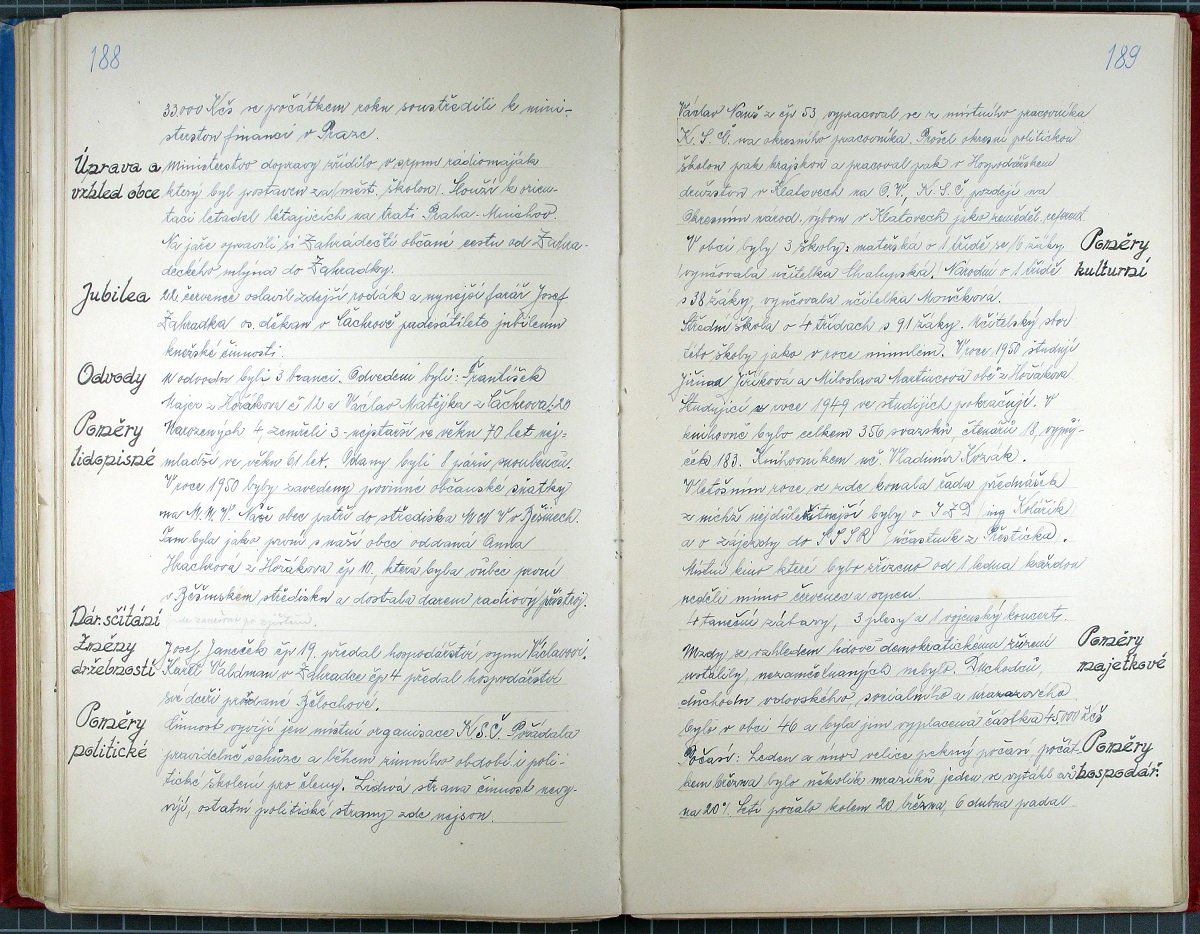 188
33.000 Kčs se počátkem roku soustředili k mini-
sterstvu financí v Praze.
Úprava a
vzhled obce
Ministerstvo dopravy zřídilo v srpnu rádiomaják
který byl postaven za měšť. školou. Slouží k orien-
taci letadel létajících na trati Praha - Mnichov.
Na jaře opravili si Zahrádečtí občané cestu od Zahra-
deckého mlýna do Zahrádky.
Jubilea
22. července oslavil zdejší rodák a nynější farář Josef
Zahradka os. děkan v Čáchrově padesátileté jubileum
kněžské činnosti.
Odvody
K odvodu byli 3 branci. Odvedeni byli: František
Majer z Hořákova č 12 a Václav Matějka z Čáchrova 20
Poměry
lidopisné
Narozených 4, zemřeli 3 - nejstarší ve věku 70 let nej-
mladší ve věku 61 let. Oddány byli 8 párů snoubenců.
V roce 1950 byly zavedeny povinné občanské sňatky
na M. N. V. Naše obec patří do střediska M N V v Běšinech.
Tam byla jako první s naší obce oddaná Anna
Hrachová z Hořákova čp 10, která byla vůbec první
v Běšinském středisku a dostala darem radiový přístroj.
Nár. sčítání
bude zaneseno po zjištění.
Změny
držebností
Josef Janeček čp 19, předal hospodářství synu Václavovi.
Karel Valdman v Zahradce čp 4 předal hospodářství
své dceři provdané Bělochové.
Poměry
politické
Činnost vyvíjí jen místní organisace K.S.Č. Pořádala
pravidelné schůze a během zimního období i poli-
tické školení pro členy. Lidová strana činnost nevy-
víjí, ostatní politické strany zde nejsou.
189
Václav Nauš z čp 53 vypracoval se z místního pracovníka
K. S. Č. na okresního pracovníka. Prošel okresní politickou
školou pak krajskou a pracoval pak v Hospodářském
družstvu v Klatovech na O.V. K. S. Č později na
Okresním národ. výboru v Klatovech jako zeměděl. referent
Poměry
kulturní
V obci byly 3 školy: mateřská o 1 třídě se 16 žáky
(vyučovala učitelka Chalupská.) Národní o 1 třídě
s 38 žáky, vyučovala učitelka Moučková.
Střední škola o 4 třídách s 91 žáky. Učitelský sbor
této školy jako v roce minulém. V roce 1950 studují
Jiřina Jiříková a Miloslava Martincová obě z Hořákova
Studující z roce 1949 ve studijích pokračují. V
knihovně bylo celkem 356 svazků, čtenářů 18, vypůj-
ček 183. Knihovníkem uč. Vladimír Kozák.
V letošním roce se zde konala řada přednášek
z nichž nejdůležitnejší byly o J Z D ing Kolařík
a o zájezdy do S S S R (účastník z Přešticka.
Místní kino které bylo zřízeno od 1 ledna každou
neděli mimo červenec a srpen
4 taneční zábavy, 3 plesy a 1 vojenský koncert.
Poměry
majetkové
Mzdy se vzhledem lidově demokratickému zřízení
ustálily, nezaměstnaných nebylo. Důchodců,
důchodu vdovského, sociálního a úrazového
bylo v obci 46 a byla jim vyplacená částka 45000 Kčs
Poměry
hospodář.
Počasí: Leden a únor velice pěkný počasí, počát-
kem března bylo několik mrazíků jeden se vytáhl až
na 20°. Setí počalo kolem 20 března, 6 dubna padal